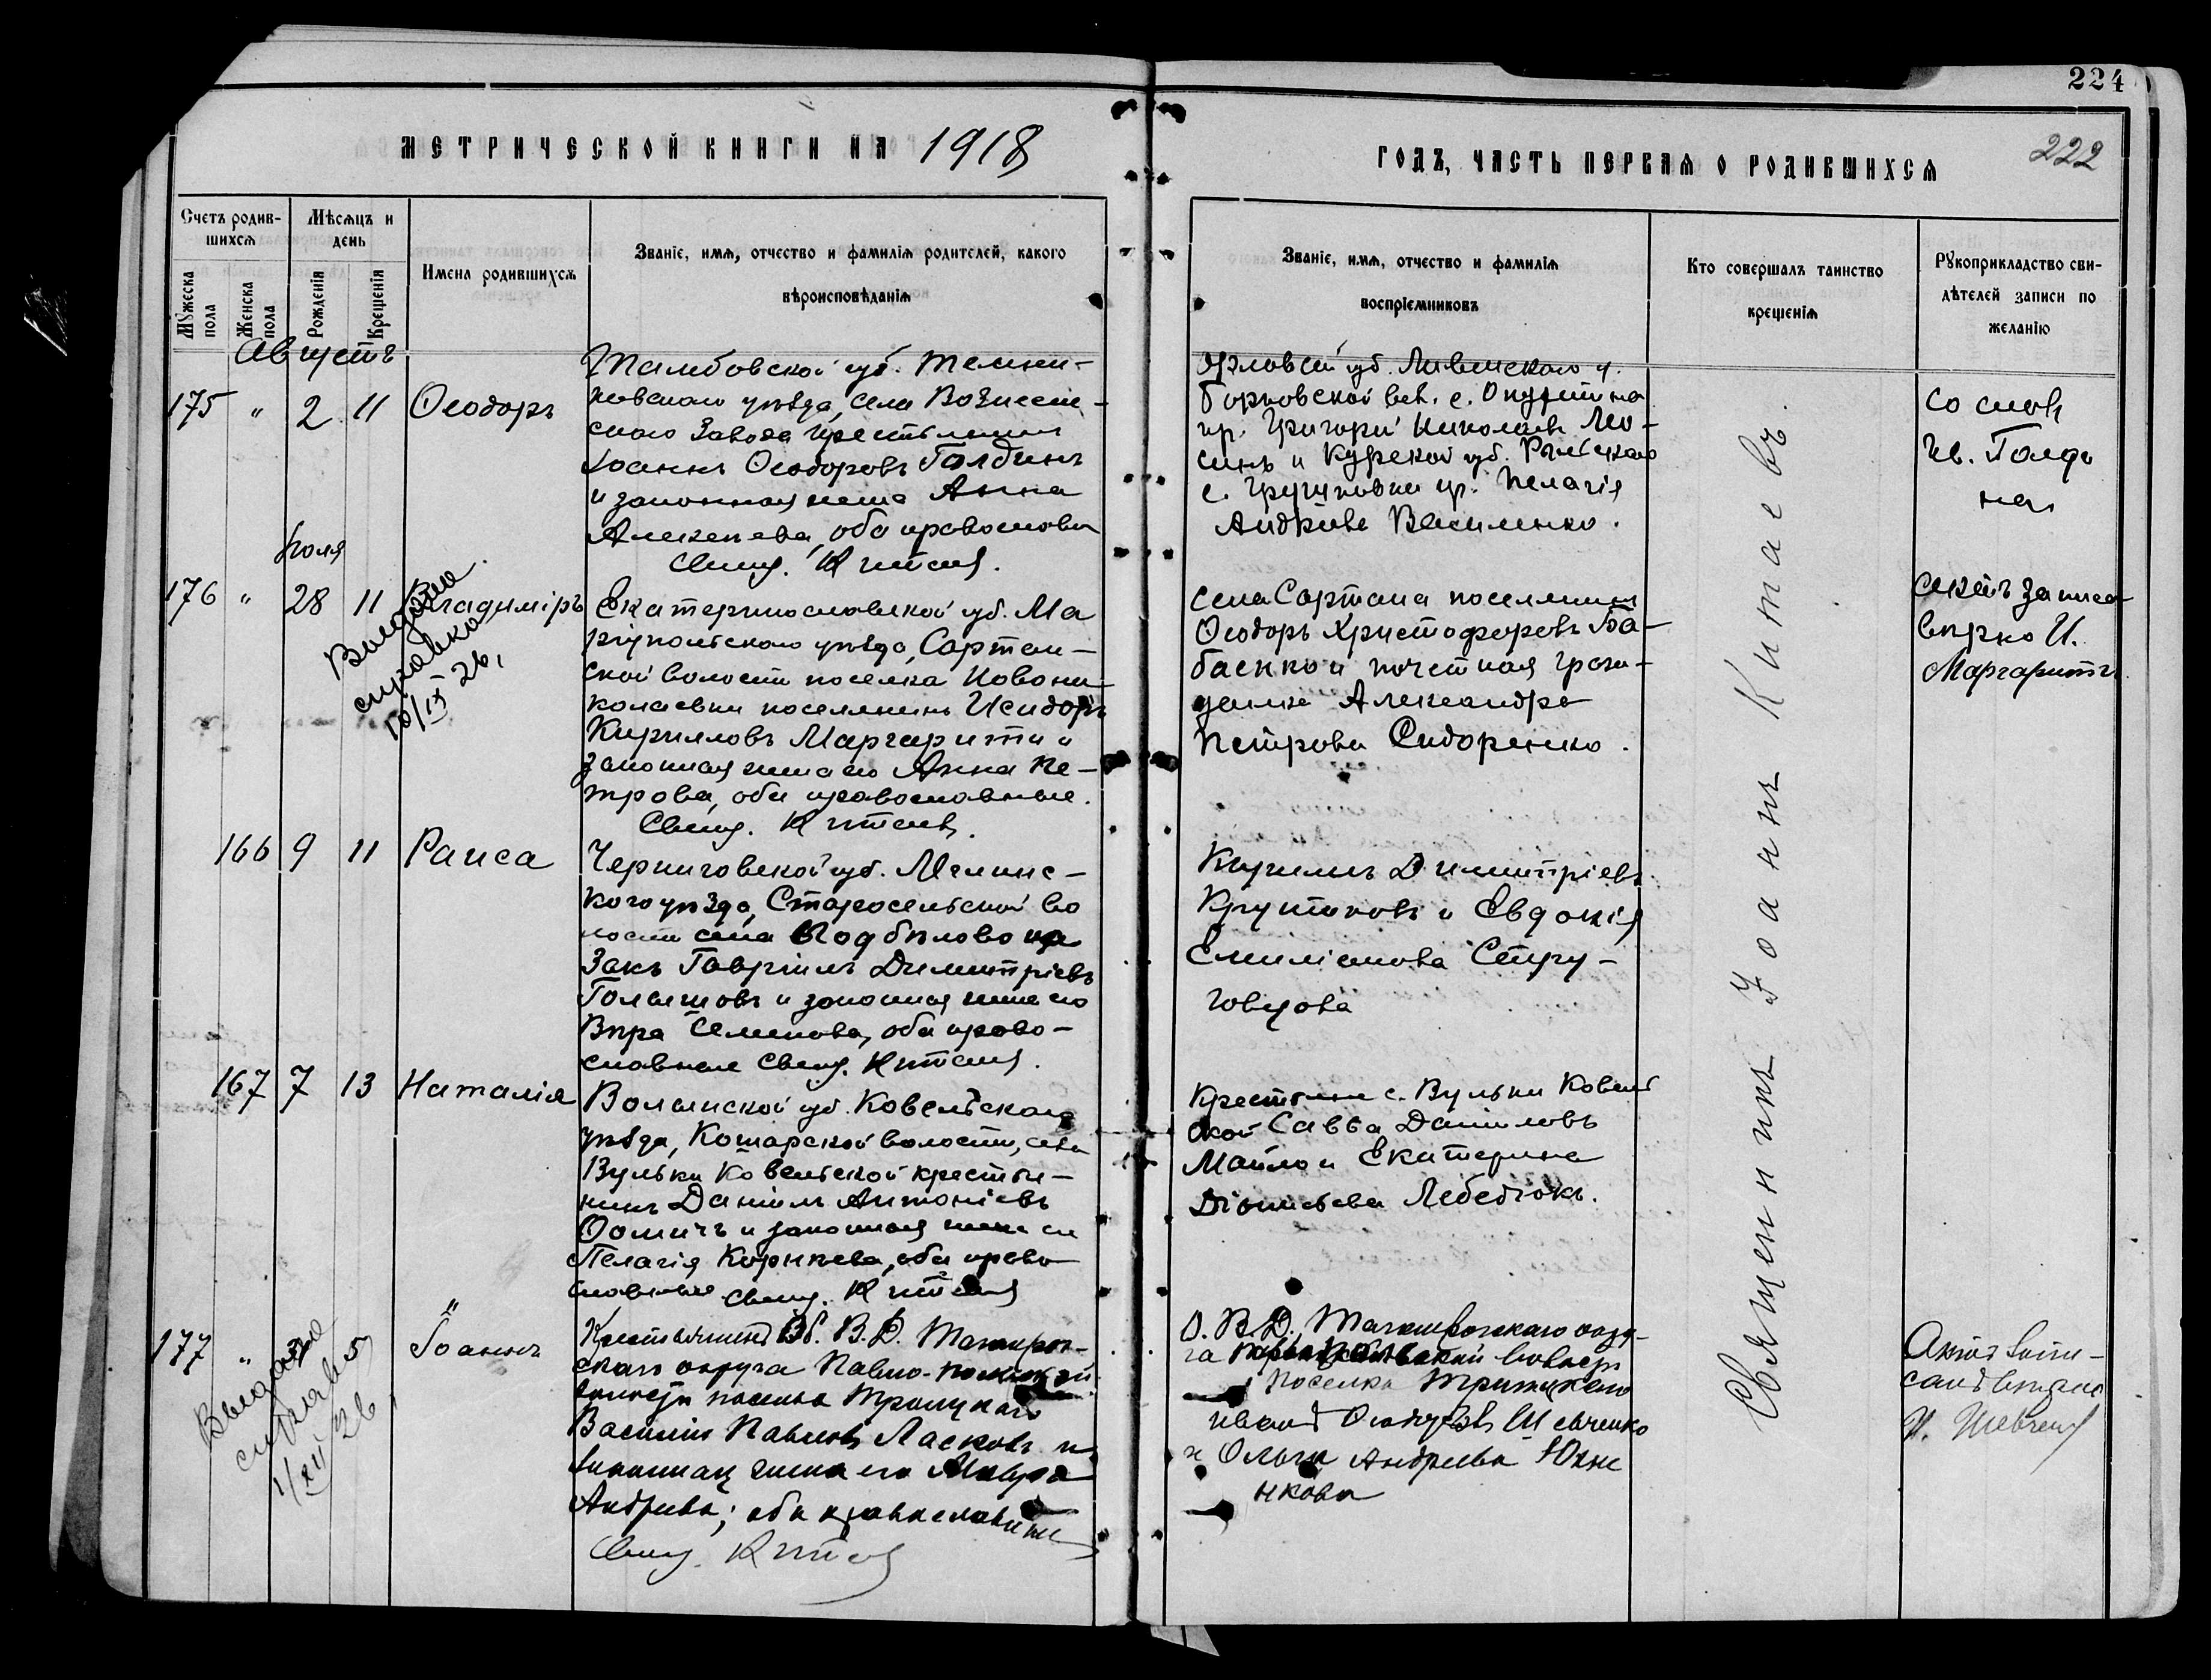 224
МЕТРИЧЕСКОЙ КНИГИ НА 1918
ГОДЪ, ЧАСТЬ ПЕРВАЯ О РОДИВШИХСЯ
222
Счетъ родив-
шихся
Мѣсяцъ и
день
Мужеска
пола
Женска
пола
Рожденія
Крещенія
Имена родившихся
Званіе, имя, отчество и фамилія родителей, какого
вѣроисповѣданія
Званіе, имя, отчество и фамилія
воспріемниковъ
Кто совершалъ таинство
крещенія
Рукоприкладство сви-
дѣтелей записи по
желанію
Августъ
175 " 2 11 Ѳеодоръ
Тамбовской губ. Темни-
ковскаго уѣзда, села Вознесен-
скаго Завода крестьянинъ
Іоаннъ Ѳеодоровъ Голдинъ
и законная жена Анна
Алексеева, оба православн
Свящ. Китаевъ.
Орловск губ. Ливенскаго у.
Борковской вол. с.
кр. Григорій Николаевъ Лео-
синъ и Курской губ. Рыльскаго
с. кр. Пелагія
Андреева Василенко.
со словъ
Ив. Голди
на
Іюля
176 " 28 11 Владиміръ
Выдано
справка
26,
Екатеринославской губ. Ма
ріупольскаго уѣзда, Сартан-
ской волости поселка Новони-
колаевки поселянинъ Исидоръ
Кирилловъ Маргарити и
законная жена его Анна Пе-
трова, оба православные.
Свящ. Китаевъ.
села Сартана поселянинъ
Ѳеодоръ Христофоровъ Ба-
баенко и почетная граж-
данка Александра
Петрова Сидоренко.
записа
вѣрно И.
Маргаритъ
166 9 11 Раиса
Черниговской губ. Мглинс-
кого уѣзда, Старосельской во
лости села Подбѣлово ка
закъ Гавріилъ Димитріевъ
и законная жена его
Вѣра Семенова, оба право-
славные Свящ. Китаевъ.
Кириллъ Димитріевъ
Крутиковъ и Евдокія
Емиліанова Стру-
говцова
167 7 13 Наталія
Волынской губ. Ковельскаго
уѣзда, волости, села
Вульки Ковельской крестья-
нинъ Даніилъ Антоніевъ
Ѳомичъ и законная жена его
Пелагія Корнѣева, оба право
славные свящ. Китаевъ
Крестьяне с. Вульки Ковель
ской Савва Даниловъ
и Екатерина
Діонисьева Лебедюкъ.
177 " 5 Іоаннъ
Выдана
справка
26,
Крестьянинъ Об. В. Д. Таганрог-
скаго округа
волости поселка Троицкаго
Василій Павловъ Ласковъ и
законная жена его Мавра
Андреева; оба православные
Свящ. Китаевъ
О. В. Д. Таганрогскаго окру-
га волости
поселка Троицкаго
Иванъ Ѳеодоровъ Шевченко
и Ольга Андреева
нкова
Актъ запи-
санъ вѣрно
И. Шевченко
Священникъ Іоаннъ Китаевъ.